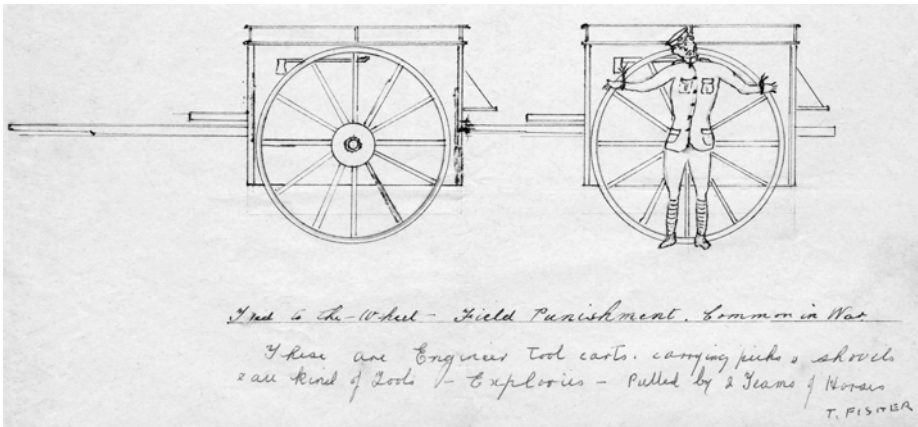 Tied to the-Wheel - Field Punishment. Common in War
These are Engineer Tool carts. carrying picks & shovels
& all kind of Tools - Explories - Pulled by 2 Teams of Horses
T. FISHER